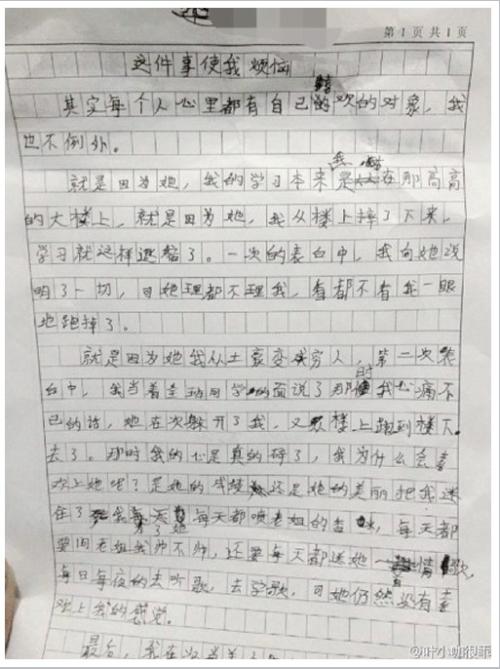 第1页 共1页
这件事使我烦恼
其实每个人心里都有自己喜欢的对象,我
也不例外。
就是因为她,我的学习本来是在那高高
的大楼上,就是因为她,我从楼上掉了下来,
学习就这样退落了。一次的表白中,我向她说
明了一切,可她理都不理我,看都不看我一眼
地跑掉了。
就是因为她我从土豪变成穷人,第二次表
白中,我当着全动同学的面说了那时我心痛不
已的话,她在次躲开了我,又从楼上跑到楼下
去了。那时我的心是真的碎了,我为什么会喜
欢上她呢?是她的成绩还是她的美丽把我迷
住了 每天都喷老姐的香水,每天都
要问老姐我帅不帅,还要每天都送她一情歌,
每日每夜的去听歌,去学歌,可她仍然没有喜
欢上我的感觉。
最后,我在